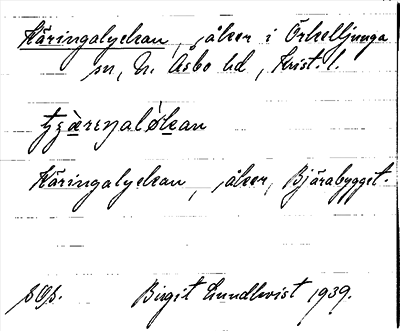 Käringalyckan, åker i Örkelljunga
sn, N. Åsbo hd, Krist. l.
tʒæ̀rɛŋalỳkan
Käringalyckan, åker, Bjärabygget.
Birgit Lundkvist 1939.